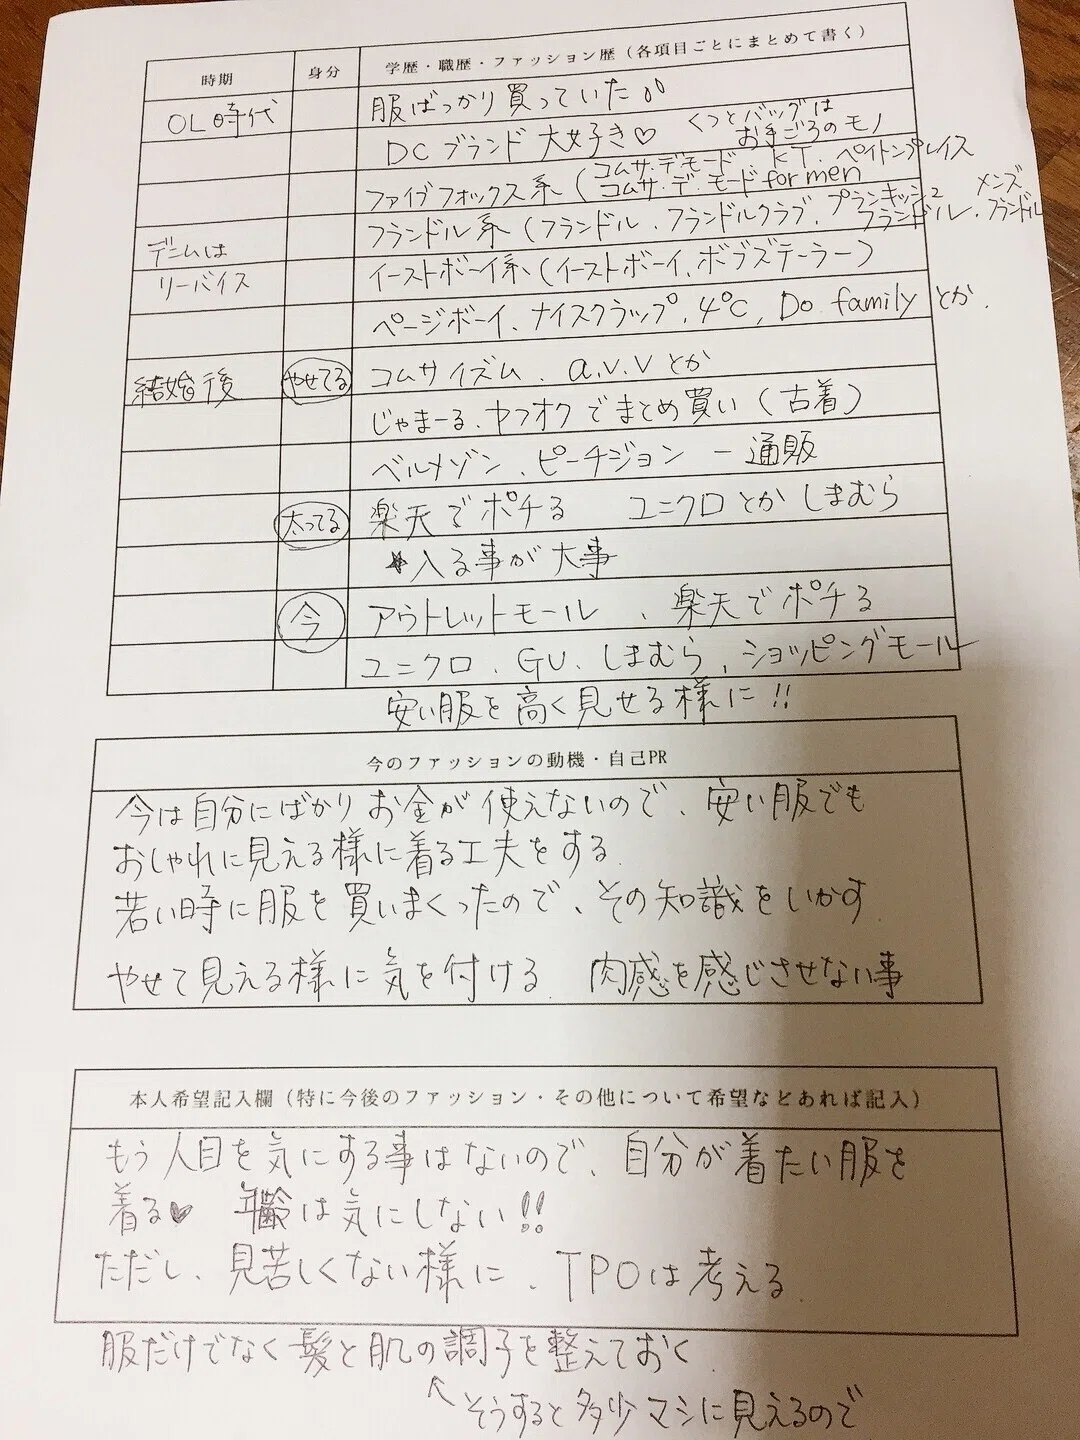 時期 身分 学歴・職歴・ファッション歴（各項目ごとにまとめて書く）
OL時代 服ばっかり買っていた
DCブランド 大好き♡ くつとバッグは
お手ごろのモノ
ファイブフォックス系（コムサ・デ・モード、KT、ペイトンプレイス
コムサ・デ・モード for men
フランドル系（フランドル、フランドルクラブ、プランキッシュ メンズ
フランドル・フランドル
デニムは
リーバイス イーストボーイ系（イーストボーイ、ボブズテーラー）
ページボーイ、ナイスクラップ、4℃、Do family とか、
結婚後 やせてる コムサイズム、a.v.v とか
じゃまーる、ヤフオクでまとめ買い（古着）
ベルメゾン、ピーチジョン ー 通販
太ってる 楽天でポチる ユニクロとかしまむら
★入る事が大事
今 アウトレットモール 、楽天でポチる
ユニクロ、GU、しまむら、ショッピングモール
安い服を高く見せる様に!!
今のファッションの動機・自己PR
今は自分にばかりお金が使えないので、安い服でも
おしゃれに見える様に着る工夫をする
若い時に服を買いまくったので、その知識をいかす
やせて見える様に気を付ける 肉感を感じさせない事
本人希望記入欄（特に今後のファッション・その他について希望などあれば記入）
もう人目を気にする事はないので、自分が着たい服を
着る♥ 年齢は気にしない!!
ただし、見苦しくない様に、TPOは考える
服だけでなく髪と肌の調子を整えておく
↖そうすると多少マシに見えるので